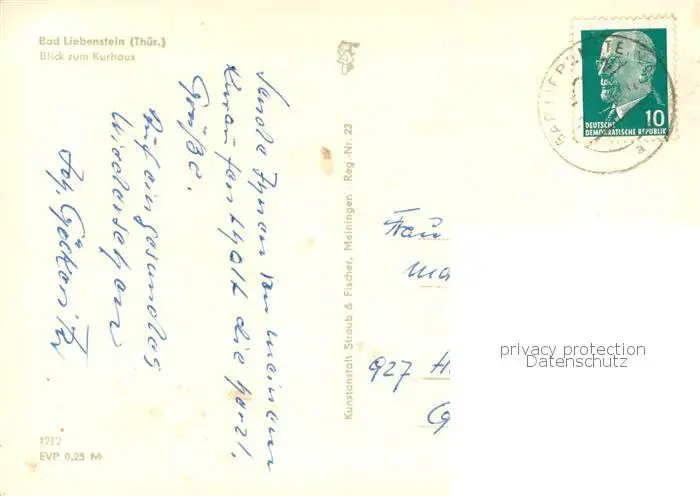 Bad Liebenstein (Thür.)
Blick zum Kurhaus
Sende Ihnen von meinem
Kuraufenthalt die herzl.
Grüße.
Auf ein gesundes
Wiedersehen
Joh.
1212
EVP 0,25 M
Kunstanstalt Straub & Fischer, Meiningen · Reg.-Nr. 23
BAD LIEBENSTEIN
a
10
DEUTSCHE
DEMOKRATISCHE REPUBLIK
Frau
Ma
927 H
privacy protection
Datenschutz